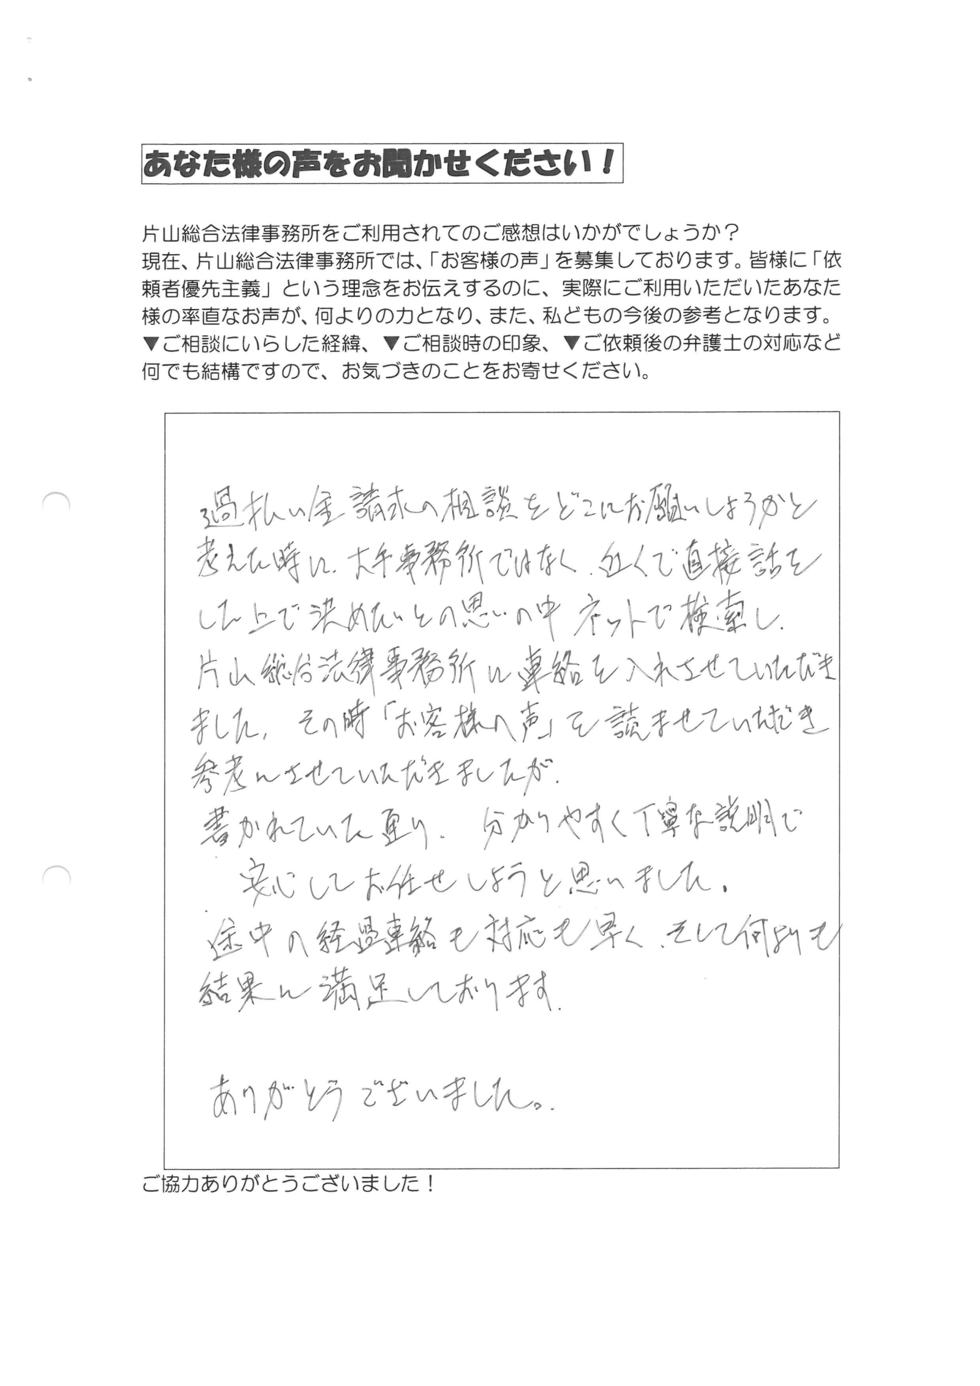 あなた様の声をお聞かせください！
片山総合法律事務所をご利用されてのご感想はいかがでしょうか？
現在、片山総合法律事務所では、「お客様の声」を募集しております。皆様に「依
頼者優先主義」という理念をお伝えするのに、実際にご利用いただいたあなた
様の率直なお声が、何よりの力となり、また、私どもの今後の参考となります。
▼ご相談にいらした経緯、▼ご相談時の印象、▼ご依頼後の弁護士の対応など
何でも結構ですので、お気づきのことをお寄せください。
過払い金請求の相談をどこにお願いしようかと
考えた時に、大手事務所ではなく、近くで直接話を
した上で決めたいとの思いの中ネットで検索し、
片山総合法律事務所に連絡を入れさせていただき
ました。その時「お客様の声」を読ませていただき
参考にさせていただきましたが、
書かれていた通り、分かりやすく丁寧な説明で
安心してお任せしようと思いました。
途中の経過連絡も対応も早く、そして何よりも
結果に満足しております。
ありがとうございました。
ご協力ありがとうございました！